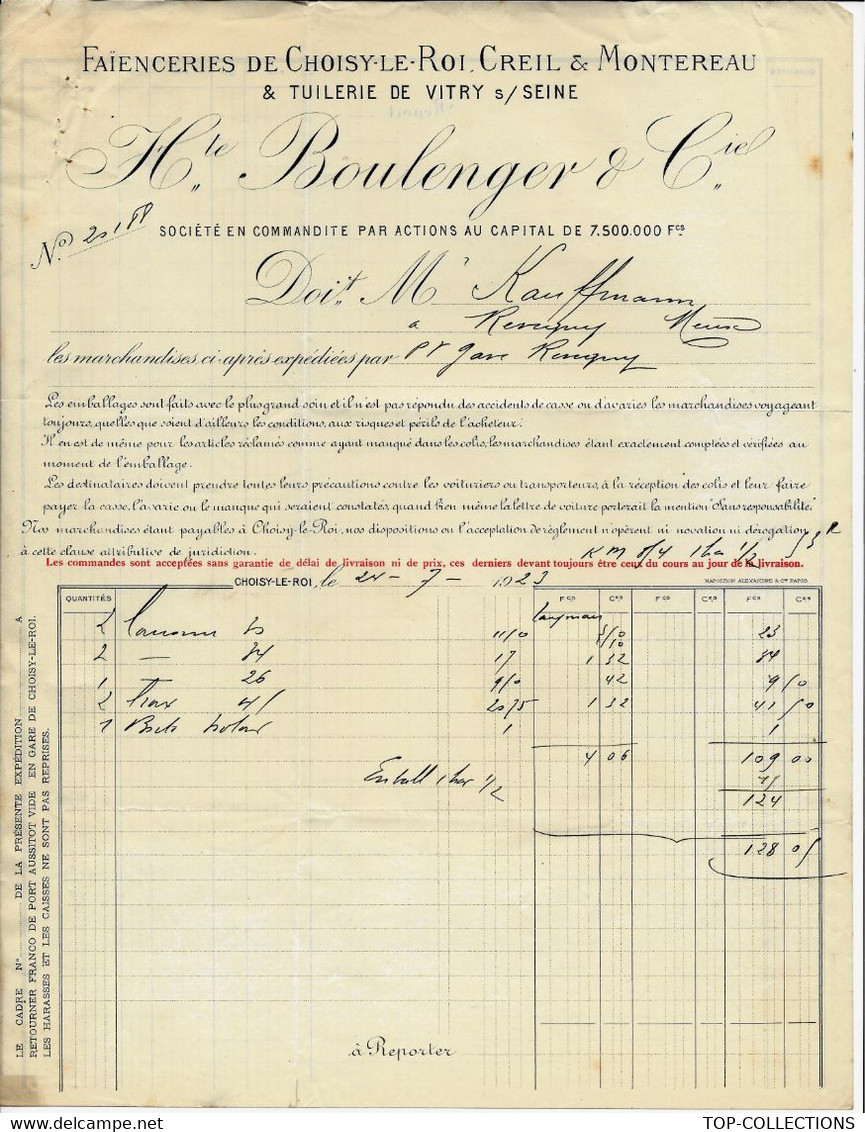 FAÏENCERIES DE CHOISY-LE-ROI, CREIL & MONTEREAU
& TUILERIE DE VITRY s/ SEINE
Hte Boulenger & Cie
No.
SOCIÉTÉ EN COMMANDITE PAR ACTIONS AU CAPITAL DE 7.500.000 Fcs
Doit Mr Kauffmann
à Revigny Meuse
les marchandises ci-après expédiées par Pr Gare Revigny
Les emballages sont faits avec le plus grand soin et il n'est pas répondu des accidents de casse ou d'avaries les marchandises voyageant
toujours, quelles que soient d'ailleurs les conditions, aux risques et périls de l'acheteur.
Il en est de même pour les articles réclamés comme ayant manqué dans les colis, les marchandises étant exactement comptées et vérifiées au
moment de l'emballage.
Les destinataires doivent prendre toutes leurs précautions contre les voituriers ou transporteurs, à la réception des colis et leur faire
payer la casse, l'avarie ou le manque qui seraient constatés, quand bien même la lettre de voiture porterait la mention "Sans responsabilité."
Nos marchandises étant payables à Choisy-le-Roi, nos dispositions ou l'acceptation de règlement n'opèrent ni novation ni dérogation
à cette clause attributive de juridiction.
Les commandes sont acceptées sans garantie de délai de livraison ni de prix, ces derniers devant toujours être ceux du cours au jour de la livraison.
CHOISY-LE-ROI, le 24-7-1923
NAPOLÉON ALEXANDRE & Cie PARIS
QUANTITÉS Fcs Ces Fcs Ces Fcs Ces
2 23
2 — 34 17 1 32 34
1 26 42
2 1 32 41 50
1 1 1
4 06 109 00
Emball 1/2
124
128 05
à Reporter
LE CADRE No DE LA PRÉSENTE EXPÉDITION A
RETOURNER FRANCO DE PORT AUSSITOT VIDE EN GARE DE CHOISY-LE-ROI.
LES HARASSES ET LES CAISSES NE SONT PAS REPRISES.
TOP-COLLECTIONS